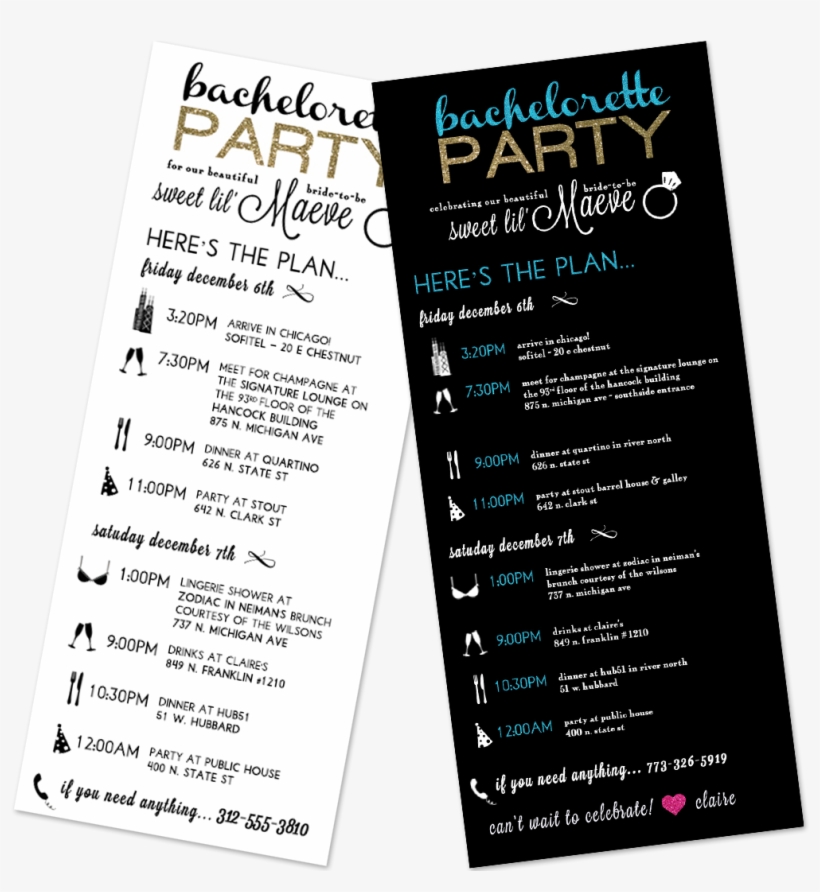 bacheloret
PARTY
for our beautiful bride-to-be
sweet lil' Maeve
HERE'S THE PLAN...
friday december 6th
3:20PM ARRIVE IN CHICAGO!
SOFITEL - 20 E CHESTNUT
7:30PM MEET FOR CHAMPAGNE AT
THE SIGNATURE LOUNGE ON
THE 93RD FLOOR OF THE
HANCOCK BUILDING
875 N. MICHIGAN AVE
9:00PM DINNER AT QUARTINO
626 N. STATE ST
11:00PM PARTY AT STOUT
642 N. CLARK ST
satuday december 7th
1:00PM LINGERIE SHOWER AT
ZODIAC IN NEIMANS BRUNCH
COURTESY OF THE WILSONS
737 N. MICHIGAN AVE
9:00PM DRINKS AT CLAIRE'S
849 N. FRANKLIN #1210
10:30PM DINNER AT HUB51
51 W. HUBBARD
12:00AM PARTY AT PUBLIC HOUSE
400 N. STATE ST
if you need anything... 312-555-3810
bachelorette
PARTY
celebrating our beautiful bride-to-be
sweet lil' Maeve
HERE'S THE PLAN...
friday december 6th
3:20PM arrive in chicago!
sofitel - 20 e chestnut
7:30PM meet for champagne at the signature lounge on
the 93rd floor of the hancock building
875 n. michigan ave - southside entrance
9:00PM dinner at quartino in river north
626 n. state st
11:00PM party at stout barrel house & galley
642 n. clark st
satuday december 7th
1:00PM lingerie shower at zodiac in neiman's
brunch courtesy of the wilsons
737 n. michigan ave
9:00PM drinks at claire's
849 n. franklin #1210
10:30PM dinner at hub51 in river north
51 w. hubbard
12:00AM party at public house
400 n. state st
if you need anything... 773-326-5919
can't wait to celebrate! claire